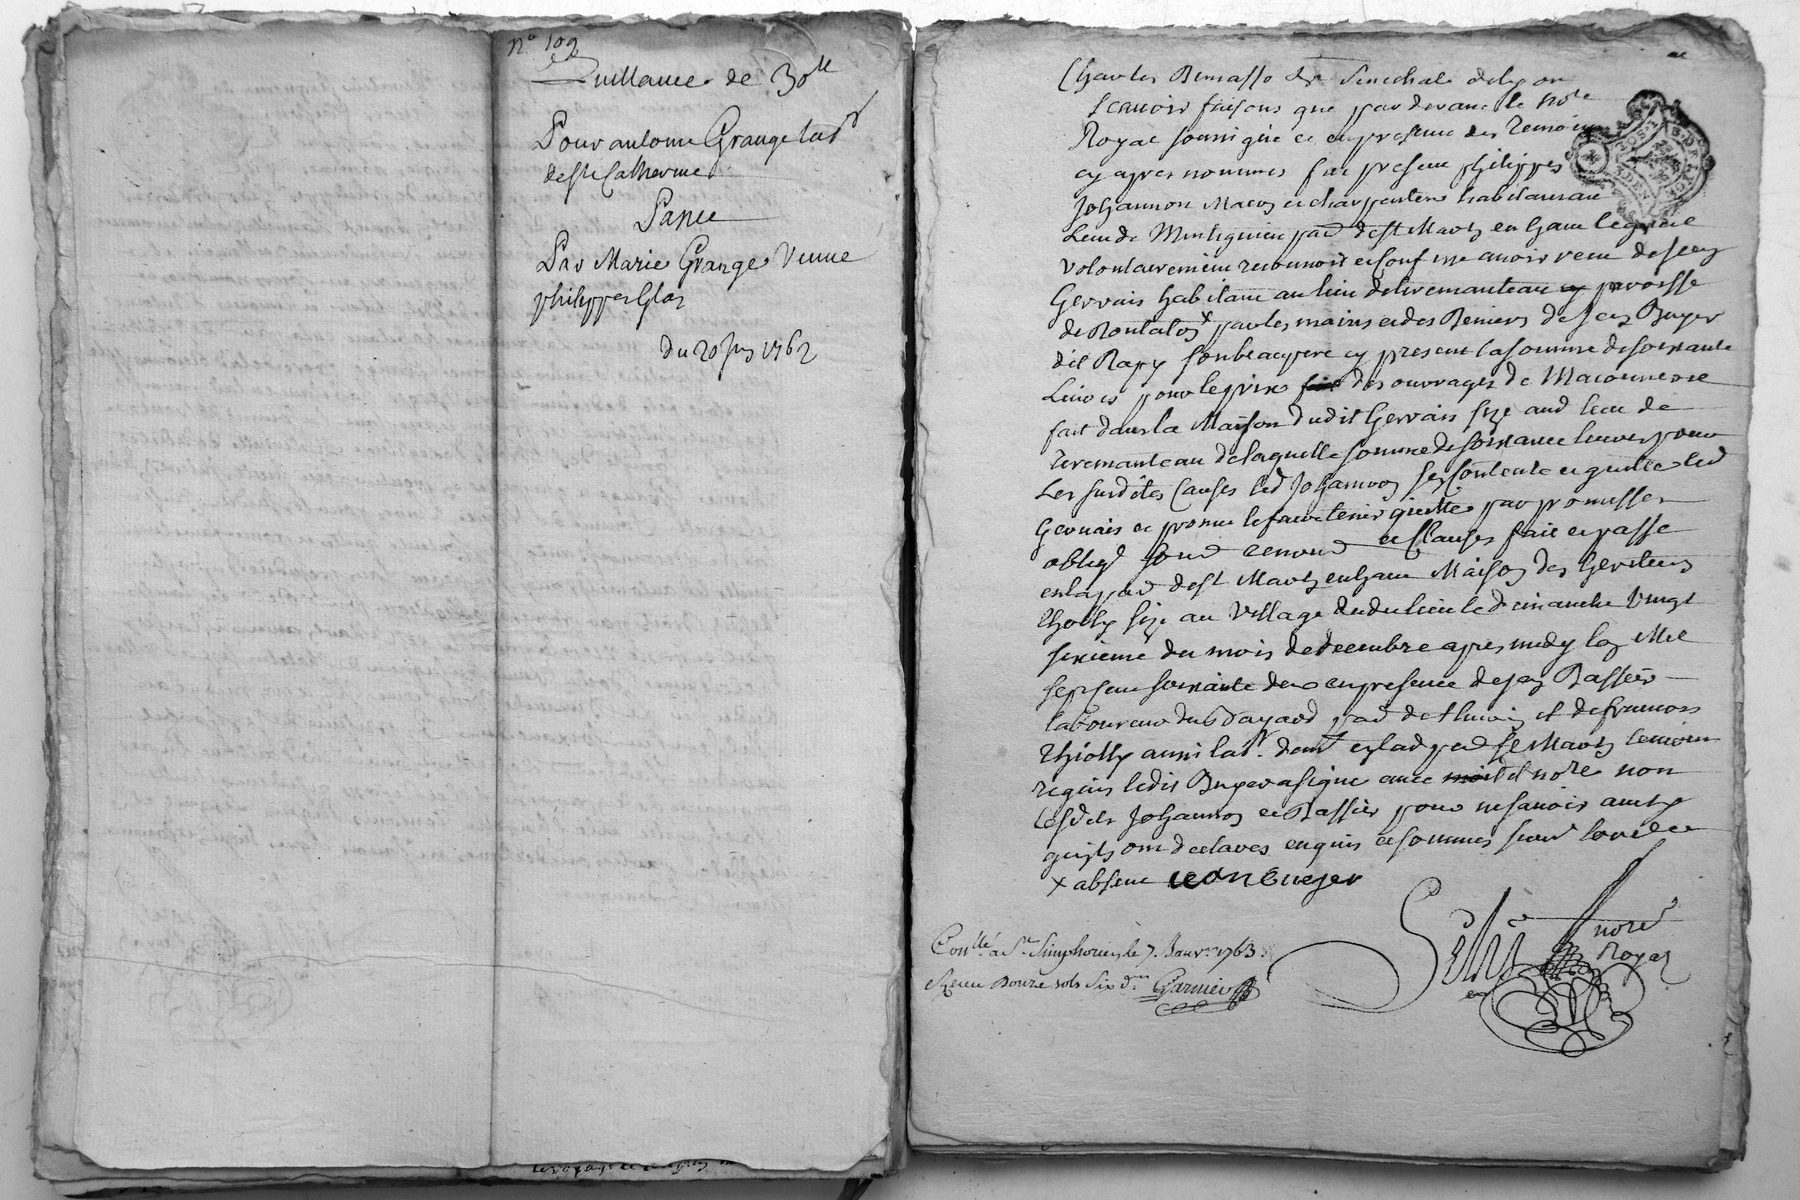 n.º 109
Quittance de 30ll
Pour antoine Grange labr
de ste Catherine
Passée
Par Marie Grange Veuve
philippes Glas
Du 20 Juin 1762
Charles Benasse Sr Senechal de lyon
Scavoir faisons que par devant le nore
Royal soussigné et en presence des temoins
cy apres nommes fut present philippes
Johannon Macon et charpentier habitant au
Lieu de par. de st Martin en haut lequel
volontairement reconnoit et confesse avoir receu de Jean
Gervais habitant au lieu de tiremanteau paroisse
de Rontalon x par les mains et des Deniers de Jean Buyer
dit Rapy son beaupere cy present la somme de soixante
Livres pour le prix des ouvrages de Maconnerie
fait dans la Maison dudit Gervais size aud lieu de
tiremanteau de laquelle somme de soixante livres pour
Les susdites Causes led Johannon se contente et quitte led
Gervais et promet le faire tenir quitte par promesses
oblign soum renon et Clauses fait et passé
en la par de st Martin en haut Maison des heritiers
thiolly size au Village dudu lieu le dimanche vingt
sixieme du mois de decembre apres midy lan Mil
sept cent soixante deux en presence de Jean Bassier
laboureur du par de thurin et de francois
thiolly aussi labr demt en lad par st Martin temoins
requis ledit Buyer a signé avec nore non
lesdits Johannon et Bassier pour ne scavoir
qu'ils ont declarés enquis et sommés suivt lord.ce
x absent jean Bueyer
nore
Royal
Conllé. a St. Simphorien le 7. Janvr. 1763.
Receu Douze sols Six drs Garnier